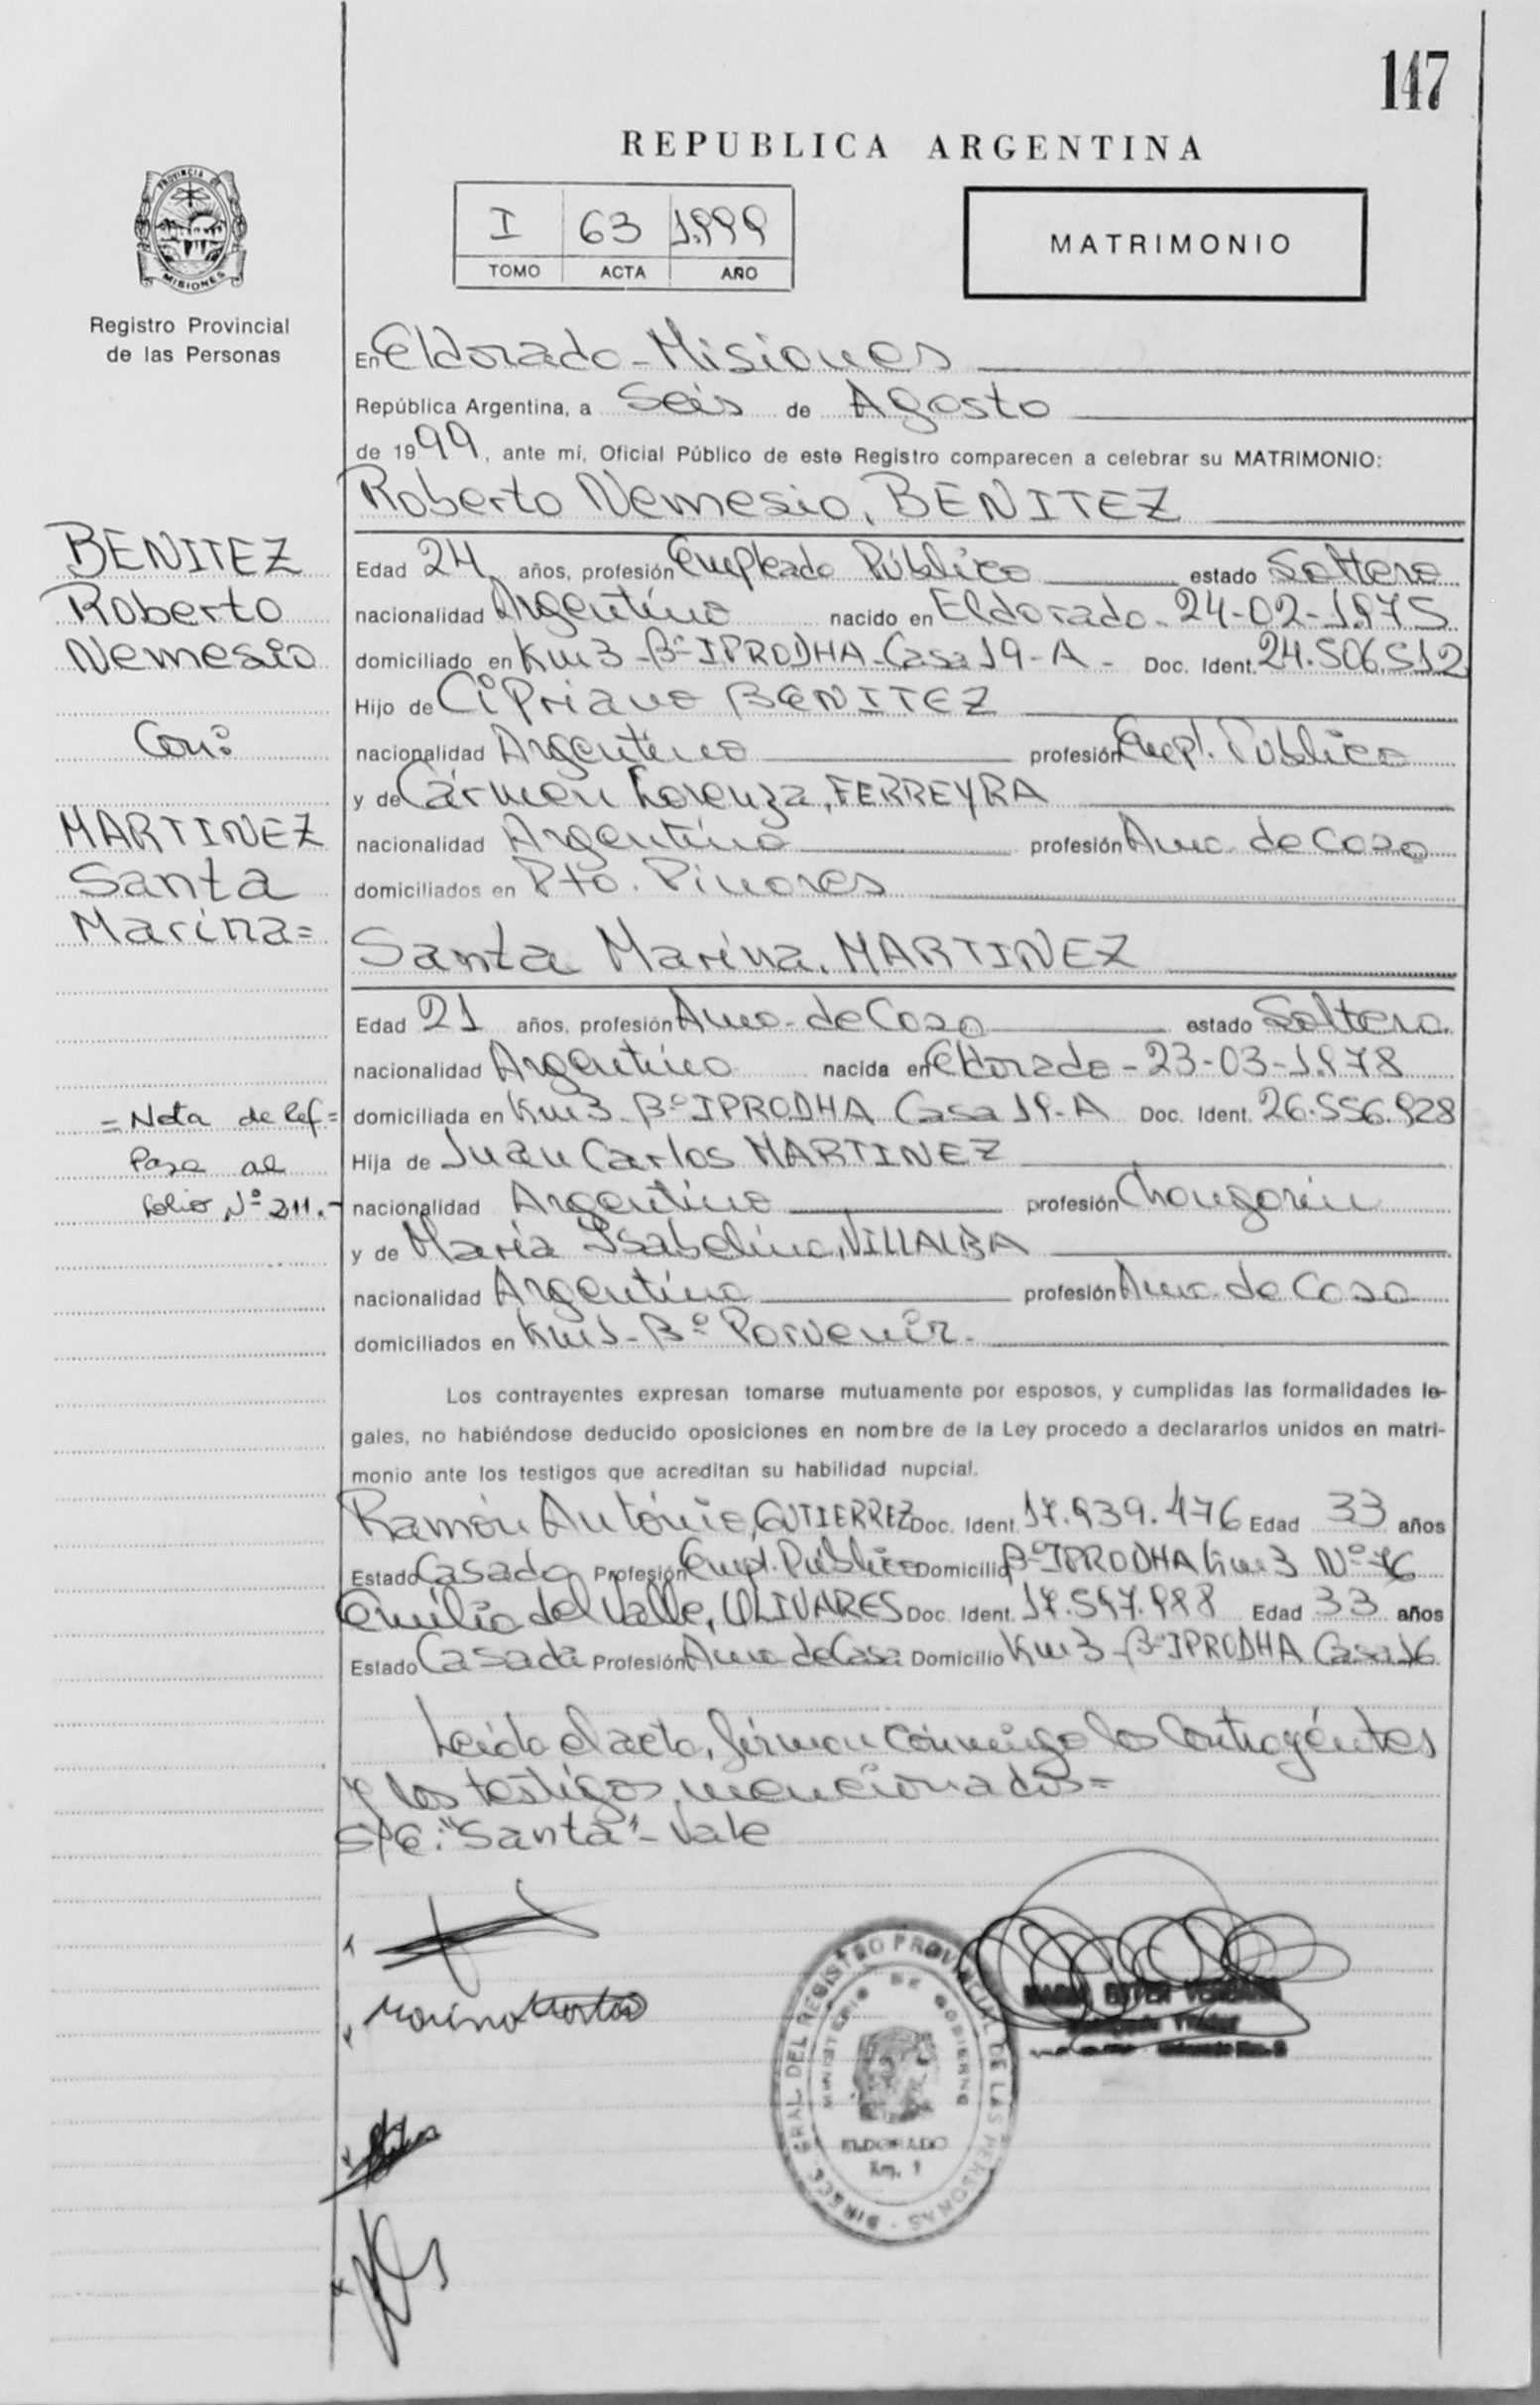 147
REPUBLICA ARGENTINA
PROVINCIA DE
MISIONES
Registro Provincial
de las Personas
I 63 1.999
TOMO ACTA AÑO
MATRIMONIO
En Eldorado - Misiones
República Argentina, a Seis de Agosto
de 1999, ante mí, Oficial Público de este Registro comparecen a celebrar su MATRIMONIO:
Roberto Nemesio, BENITEZ
BENITEZ
Roberto
Nemesio
Con:
MARTINEZ
Santa
Marina=
Edad 24 años, profesión Empleado Público estado Soltero
nacionalidad Argentino nacido en Eldorado - 24-02-1.975
domiciliado en Km 3 - Bº IPRODHA - Casa 19 - A - Doc. Ident. 24.506.512
Hijo de Cipriano BENITEZ
nacionalidad Argentino profesión Empl. Público
y de Cármen Lorenza, FERREYRA
nacionalidad Argentina profesión Ama de Casa
domiciliados en Pto. Pinares
Santa Marina, MARTINEZ
Edad 21 años, profesión Ama de Casa estado Soltera
nacionalidad Argentina nacida en Eldorado - 23-03-1.978
domiciliada en Km 3 - Bº IPRODHA Casa 19 - A Doc. Ident. 26.556.928
Hija de Juan Carlos MARTINEZ
nacionalidad Argentino profesión Changarín
y de María Isabelina, VILLALBA
nacionalidad Argentina profesión Ama de Casa
domiciliados en Km 1 - Bº Porvenir -
= Nota de Ref =
Pasa al
folio Nº 211.-
Los contrayentes expresan tomarse mutuamente por esposos, y cumplidas las formalidades le-
gales, no habiéndose deducido oposiciones en nombre de la Ley procedo a declararlos unidos en matri-
monio ante los testigos que acreditan su habilidad nupcial.
Ramón António, GUTIERREZ Doc. Ident. 17.939.476 Edad 33 años
Estado Casado Profesión Empl. Público Domicilio Bº IPRODHA Km 3 Nº 16
Emilia del Valle, OLIVARES Doc. Ident. 17.597.988 Edad 33 años
Estado Casada Profesión Ama de Casa Domicilio Km 3 - Bº IPRODHA Casa 16
Leída el acta, firman conmigo los Contrayéntes
y los testigos mencionados=
S/E: "Santa" - Vale
DIRECC. GRAL. DEL REGISTRO PROVINCIAL DE LAS PERSONAS
MINISTERIO DE GOBIERNO
ELDORADO
Km. 1